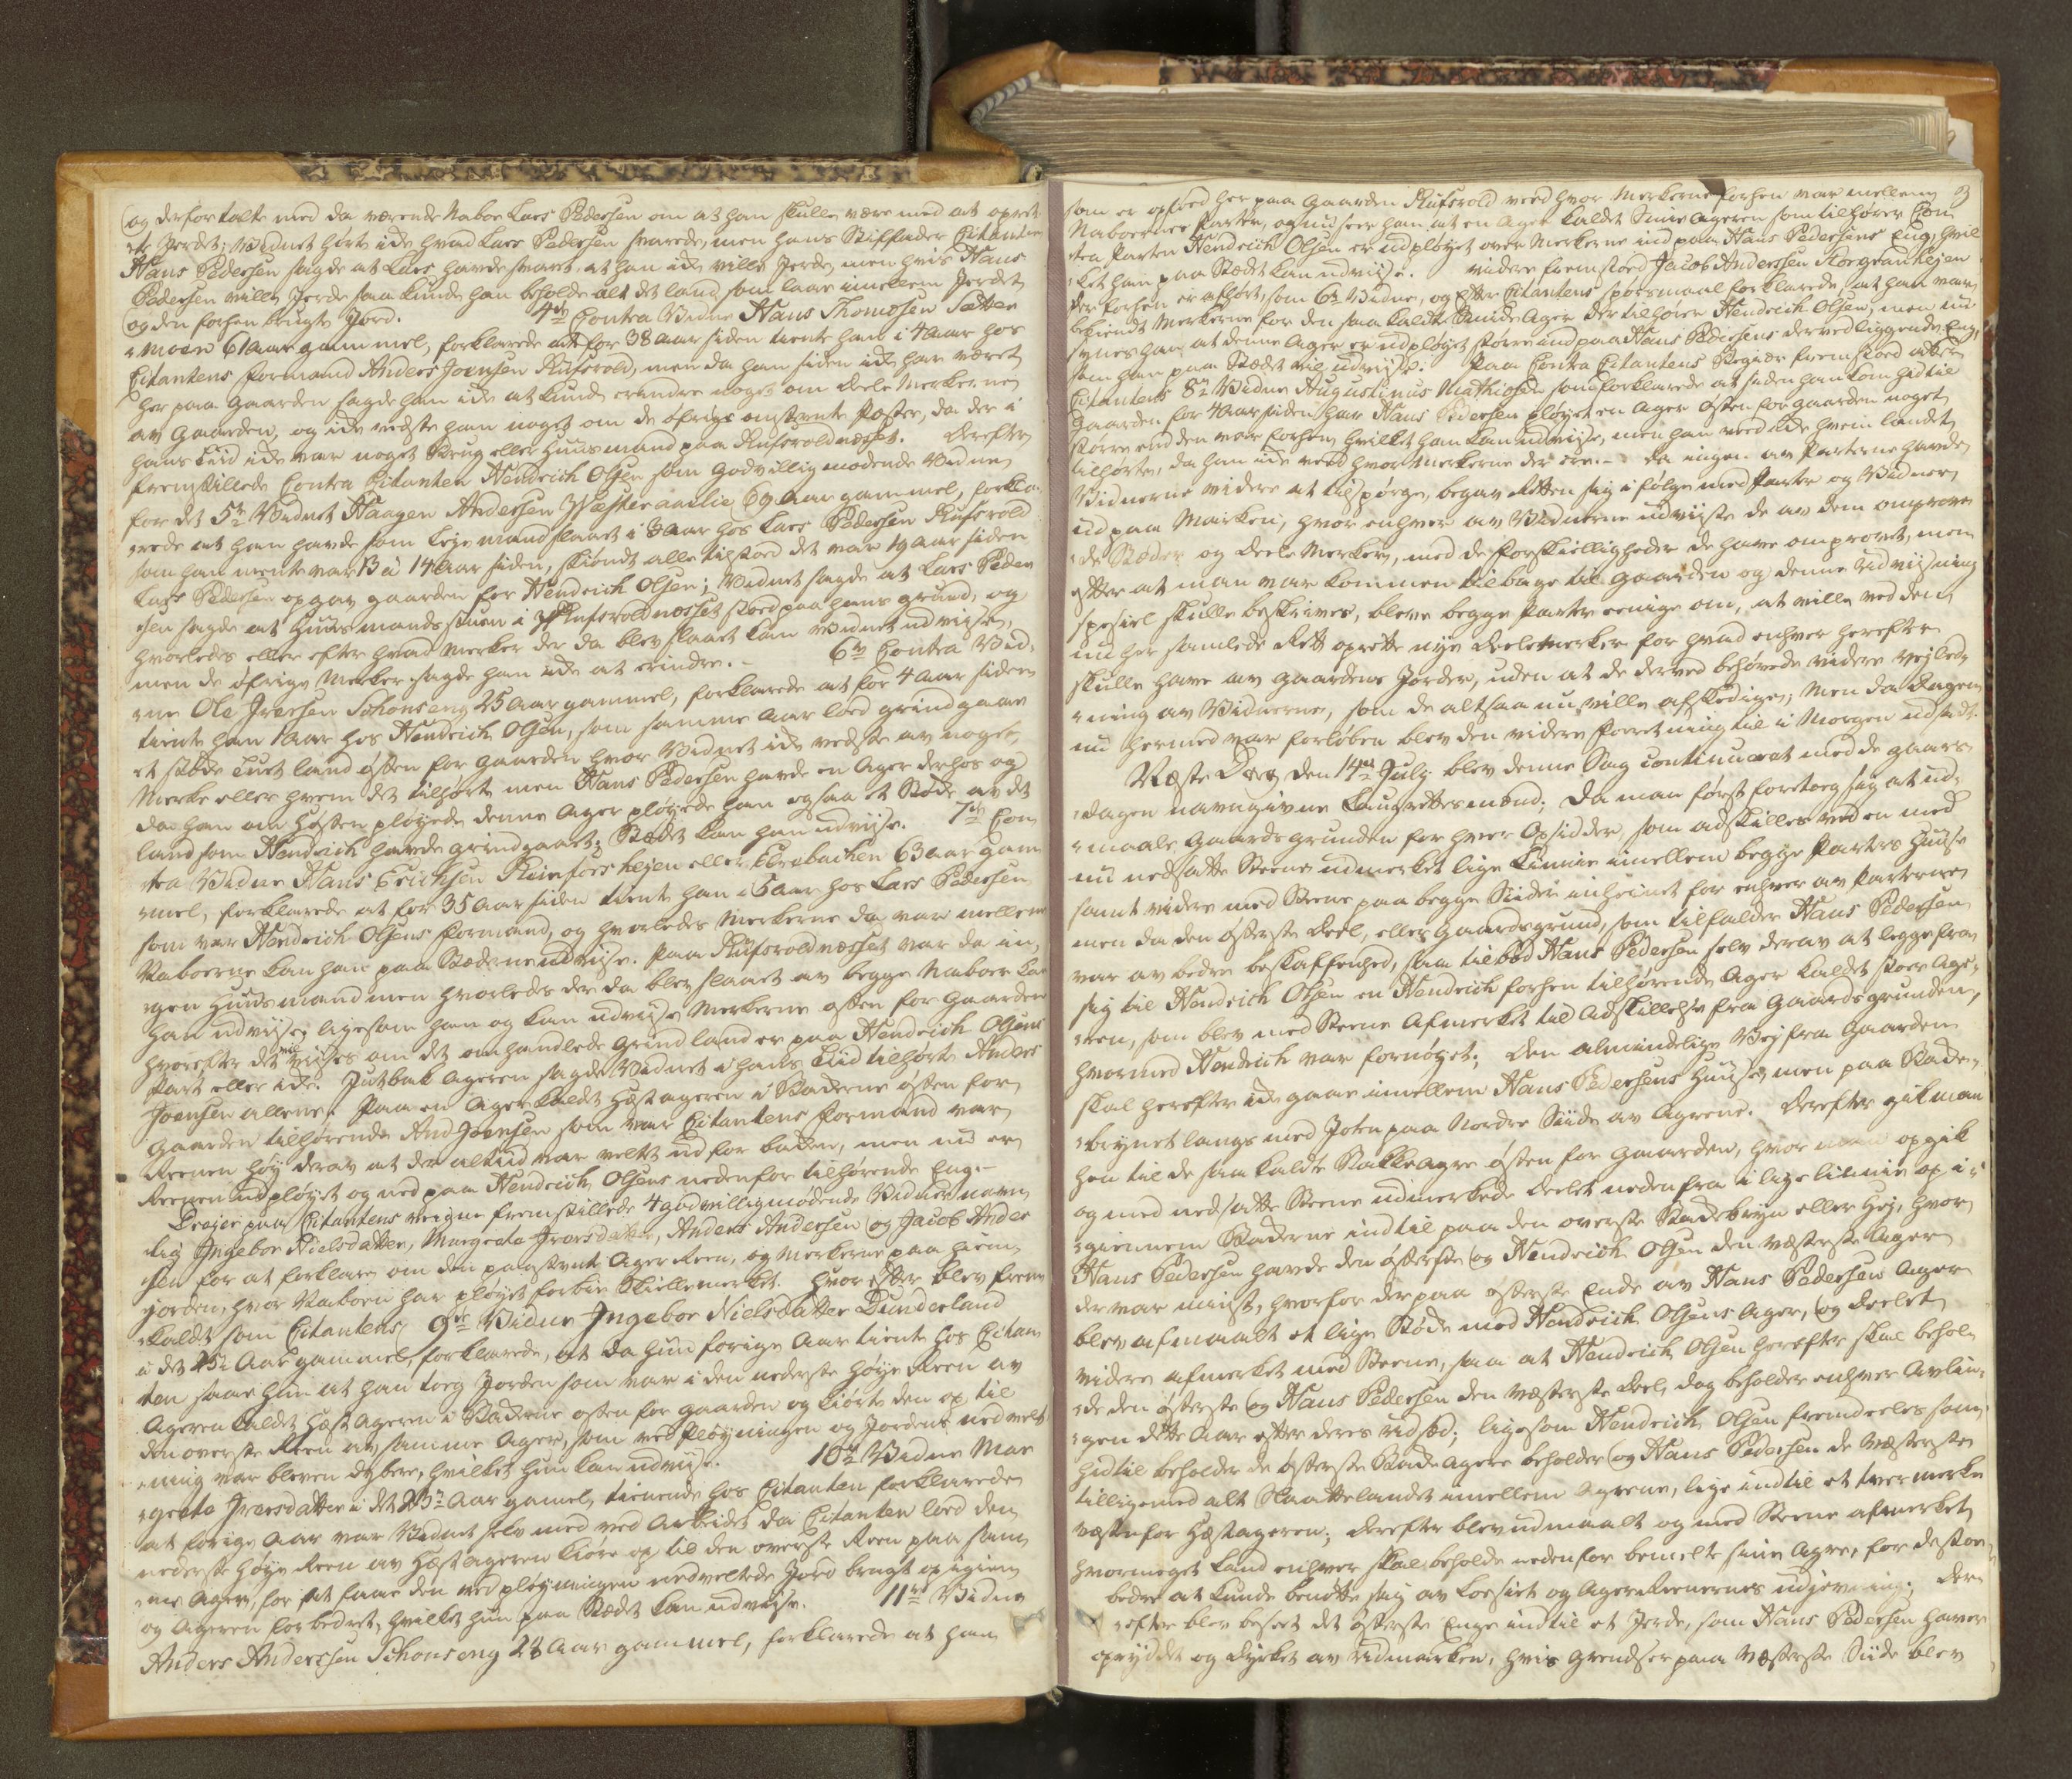 og derfor talte med da værende Naboe Lars Pedersen om at han skulle være med at opret-
te Jerdet; Vidnet hørte icke hvad Lars Pedersen svarede, men hans Stiffader Citanten
Hans Pedersen sagde at Lars havde svart, at han icke ville Jerde, men hvis Hans
Pedersen ville Jerde saa kunde han beholde alt det land som laae imellem Jerdet
og den forhen brugte Jord. 4de Contra Vidne Hans Thomesen Sætter
moen 61 Aar gammel, forklarede at for 38 Aar siden tiente han i 4 Aar hos
Citantens formand Anders Joensen Rufsvold, men da han siden icke har været
her paa gaarden sagde han icke at kunde erindre noget om deele Merkerne
av Gaarden, og icke vidste han noget om de øfrige omstevnte Poster, da der i
hans tiid icke var noget Brug eller Huusmand paa Rufsvoldnæsset. Derefter
fremstillede Contra Citanten Hendrich Olsen som godvillig mødende Vidne
for det 5te Vidnet Haagen Andersen Westeraalie 69 Aar gammel, forkla-
rede at han havde som Leyemand slaaet i 3 Aar hos Lars Pedersen Rufsvold
som han mente var 13 a 14 Aar siden, skiøndt alle tilstoed det var 19 Aar siden
Lars Pedersen opgav gaarden for Hendrich Olsen; Vidnet sagde at Lars Peder
sen sagde at Huusmands stuen i Rufsvoldnæsset stoed paa hans grund, og
hvorledes eller efter hvad Merker der da blev slaaet kan Vidnet udviise,
men de øfrige Merker sagde han icke at erindre. - 6te Contra Vid-
ne Ole Iversen Schonseng 25 Aar gammel, forklarede at for 4 Aar siden
tiente han 1 Aar hos Hendrich Olsen, som samme Aar loed grindgaae
et støcke Tuet land østen for gaarden hvor Vidnet icke vedste av noget
Merke eller hvem det tilhørte men Hans Pedersen havde en Ager derhos og
da han om Høsten pløyede denne Ager pløyede han og saa et Støcke av det
land som Hendrich havde grindgaaet; Stædet kan han udviise. 7de Con
tra Vidne Hans Erichsen Reinfors hejen eller Ebrobachen 63 Aar gam-
mel, forklarede at for 35 Aar siden tiente han i 5 Aar hos Lars Pedersen
som var Hendrich Olsens formand, og hvorledes Merkerne da var mellem
Naboerne kan han paa Stæderne udviise. Paa Rufsvoldnæsset var da in-
gen Huusmand men hvorledes der da blev slaaet av begge Naboer kan
han udviise, ligesom han og kan udviise Merkerne østen for Gaarden
hvorefter det vil viises om det omhandlede grindland er paa Hendrich Olsens
Part eller icke. Jutbak Ageren sagde Vidnet i hans Tiid tilhørte Anders
Joensen allene. Paa en Ager kaldet Hæst ageren i Backerne østen for
Gaarden tilhørende And Joensen som var Citantens formand var
Reenen høy derav at der altiid var veltet ud for backen, men nu er
Reenen udpløyet og ned paa Hendrich Olsens nedenfor tilhørende Eng. -
Drejer paa Citantens vegne fremstillede 4 godvilligmødende Vidner navn
lig Ingebor Nielsdatter, Margreta Iversdatter, Anders Andersen og Jacob Ander
sen for at forklare om den paastevnte Ager Reen, og Merkerne paa Hiem-
jorden, hvor Naboen har pløyet forbie Skiellemerket. Hvor efter blev frem-
kaldt som Citantens 9de Vidne Ingebor Nielsdatter Dunderland
i det 23de Aar gammel, forklarede, at da hun forige Aar tiente hos Citan
ten saae hun at han toeg Jorden som var i den nederste høye Reen av
Ageren kaldet Hæst Ageren i Backerne østen for gaarden og kiørte den op til
den overste Reen av samme Ager, som ved pløyningen og Jordens nedvelt-
ning var bleven dybere, hvilket hun kan udviise. 10de Vidne Mar
greta Iversdatter i det 23de Aar gamel, tienende hos Citanten forklarede
at forige Aar var Vidnet selv med ved Arbeidet da Citanten loed den
nederste høye Reen av Hæstageren kiøre op til den overste Reen paa sam-
me Ager, for at faae den ved pløyningen nedveltede Jord bragt op igien
og Ageren forbedret, hvilket hun paa Stædet kan udviise. 11te Vidne
Anders Anderssen Schonseng 28 Aar gammel, forklarede at han
3
som er opføed her paa Gaarden Rufsvold veed hvor Merkerne forhen var mellem
Naboernes Parter, og nu seer han at en Ager kaldet Smie Ageren som tilhører Con
tra Parten Hendrich Olsen er udpløyet over Merkerne ind paa Hans Pedersens Eng, hvil
ket han paa Stædet kan udviise. Videre fremstoed Jacob Anderssen Storgranhejen
der forhen er afhørt som 6te Vidne, og efter Citantens spørsmaal forklarede at han var
bekiendt Merkerne for den saa kaldte Smide Ager der tilhører Hendrich Olsen, men nu
synes han at denne Ager er udpløyet større ind paa Hans Pedersens derved liggende Eng,
som han paa Stædet vil udviise. Paa Contra Citantens Begiær fremstoed atter
Citantens 8de Vidne Augustinus Mathiesen som forklarede at siden han kom hid til
Gaarden for 4 Aar siden har Hans Pedersen pløyet en Ager østen for gaarden noget
større end den var forhen, hvilket han kan udviise, men han veed icke hvem landet
tilhørte, da han icke veed hvor Merkerne der ere. - Da ingen av Parterne havde
Vidnerne videre at tilspørge, begav Retten sig i følge med Parter og Vidner
ud paa Marken, hvor enhver av Vidnerne udviiste de av dem ommprove
de Stæder og deele Merker, med de forskielligheder de have omprovet, men
efter at man var kommen tilbage til Gaarden og denne Udviisning
spesiel skulle beskrives, bleve begge Parter eenige om, at ville ved den
nu her samlede Rett oprette nye Deelemerker for hvad enhver herefter
skulle have av gaardens Jorder, uden at de derved behøvede videre vejled-
ning av Vidnerne, som de altsaa nu ville afskedige; Men da Dagen
nu hermed var forløben blev den videre foretning til i Morgen udsadt.
Næste Dag den 14de July blev denne Sag continueret med de gaars-
dagen navngivne Laugrettesmænd. Da man først foretoeg sig at ud-
maale Gaardsgrunden for hver Opsidder, som adskilles ved en med
nu nedsatte Steene udmerket lige Linnie imellem begge Parters Huuse
samt videre med Steene paa begge Siider indhegnet for enhver av Parterne
men da den østerste Deel, eller Gaardsgrund, som tilfalder Hans Pedersen
var av bedre beskaffenhed, saa tilbød Hans Pedersen selv derav at legge fra
sig til Hendrich Olsen en Hendrich forhen tilhørende Ager kaldet store Age-
ren, som blev med Steene Afmerket til Adskillelse fra Gaardsgrunden,
hvormed Hendrich var fornøyet; Den almindelige Vej fra Gaarden
skal herefter icke gaae imellem Hans Pedersens Huuse, men paa Backe-
brynet langs med Joten paa Nordre Siide av Agrene. Derefter gik man
hen til de saa kaldte Stakkeagre østen for Gaarden, hvor man opgik
og med nedsatte Steene udmerkede Deelet neden fra i lige linnie op i-
giennem Backerne ind til paa den overste Backebryn eller Høj, hvor
Hans Pedersen havde den østerste og Hendrich Olsen den væsterste Ager
der var minst, hvorfor der paa østerste Ende av Hans Pedersens Ager
blev afmaalt et lige Støcke mod Hendrich Olsens Ager, og Deelet
videre afmerket med Steene, saa at Hendrich Olsen herefter skal behol-
de den østerste og Hans Pedersen den væsterste Deel, dog beholder enhver Avlin-
gen dette Aar efter deres udsæd; ligesom Hendrich Olsen fremdeeles som
hidtil beholder de østerste Backe Agere beholder og Hans Pedersen de væsterste
tilligemed alt Slaattelandet imellem Agrene, lige indtil et tver merke
vesten for Hæstageren; Derefter blev udmaalt og med Steene afmerket
hvormeget land enhver skal beholde nedenfor bemelte sine Agre, for desto
bedre at kunde benytte sig av Løesiet og Ager Reenernes udjevning. Der-
efter blev beseet det østerste Enge indtil et Jerde, som Hans Pedersen haver
opryddet og dyrket av Udmarken, hvis grendser paa væsterste Siide blev